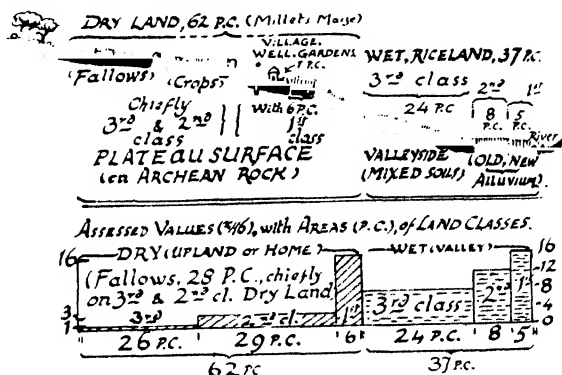 DRY LAND, 62 P.C. (Millets Maize)
VILLAGE.
WELL-GARDENS
1 P.C.
WET, RICELAND, 37 P.C.
(Fallows) (Crops)
3rd class 2nd 1st
24 P.C 8 P.C. 5 P.C.
Chiefly
3rd & 2nd
class
With 6 P.C.
1st
class
River
PLATEAU SURFACE
(on ARCHEAN ROCK)
VALLEYSIDE
(MIXED SOILS)
(OLD, NEW
Alluvium).
ASSESSED VALUES (), with AREAS (P.C.), of LAND CLASSES.
16 DRY (UPLAND or HOME) WET (VALLEY) 16
(Fallows, 28 P.C., chiefly
on 3rd & 2nd cl. Dry Land
12
8
4
0
3
1
3rd 2nd cl. 1st 3rd class 2nd 1st
26 P.C. 29 P.C. 6 24 P.C. 8 5
62 PC 37 P.C.